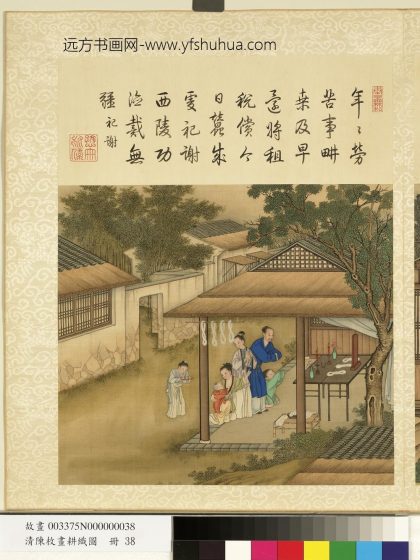 远方书画网-www.yfshuhua.com
年〻勞
苦事畊
桒及早
還將租
稅償今
日蠶成
虔祀謝
西陵功
德戴無
疆 祀謝
故畫 003375N000000038
清陳枚畫耕織圖 冊 38